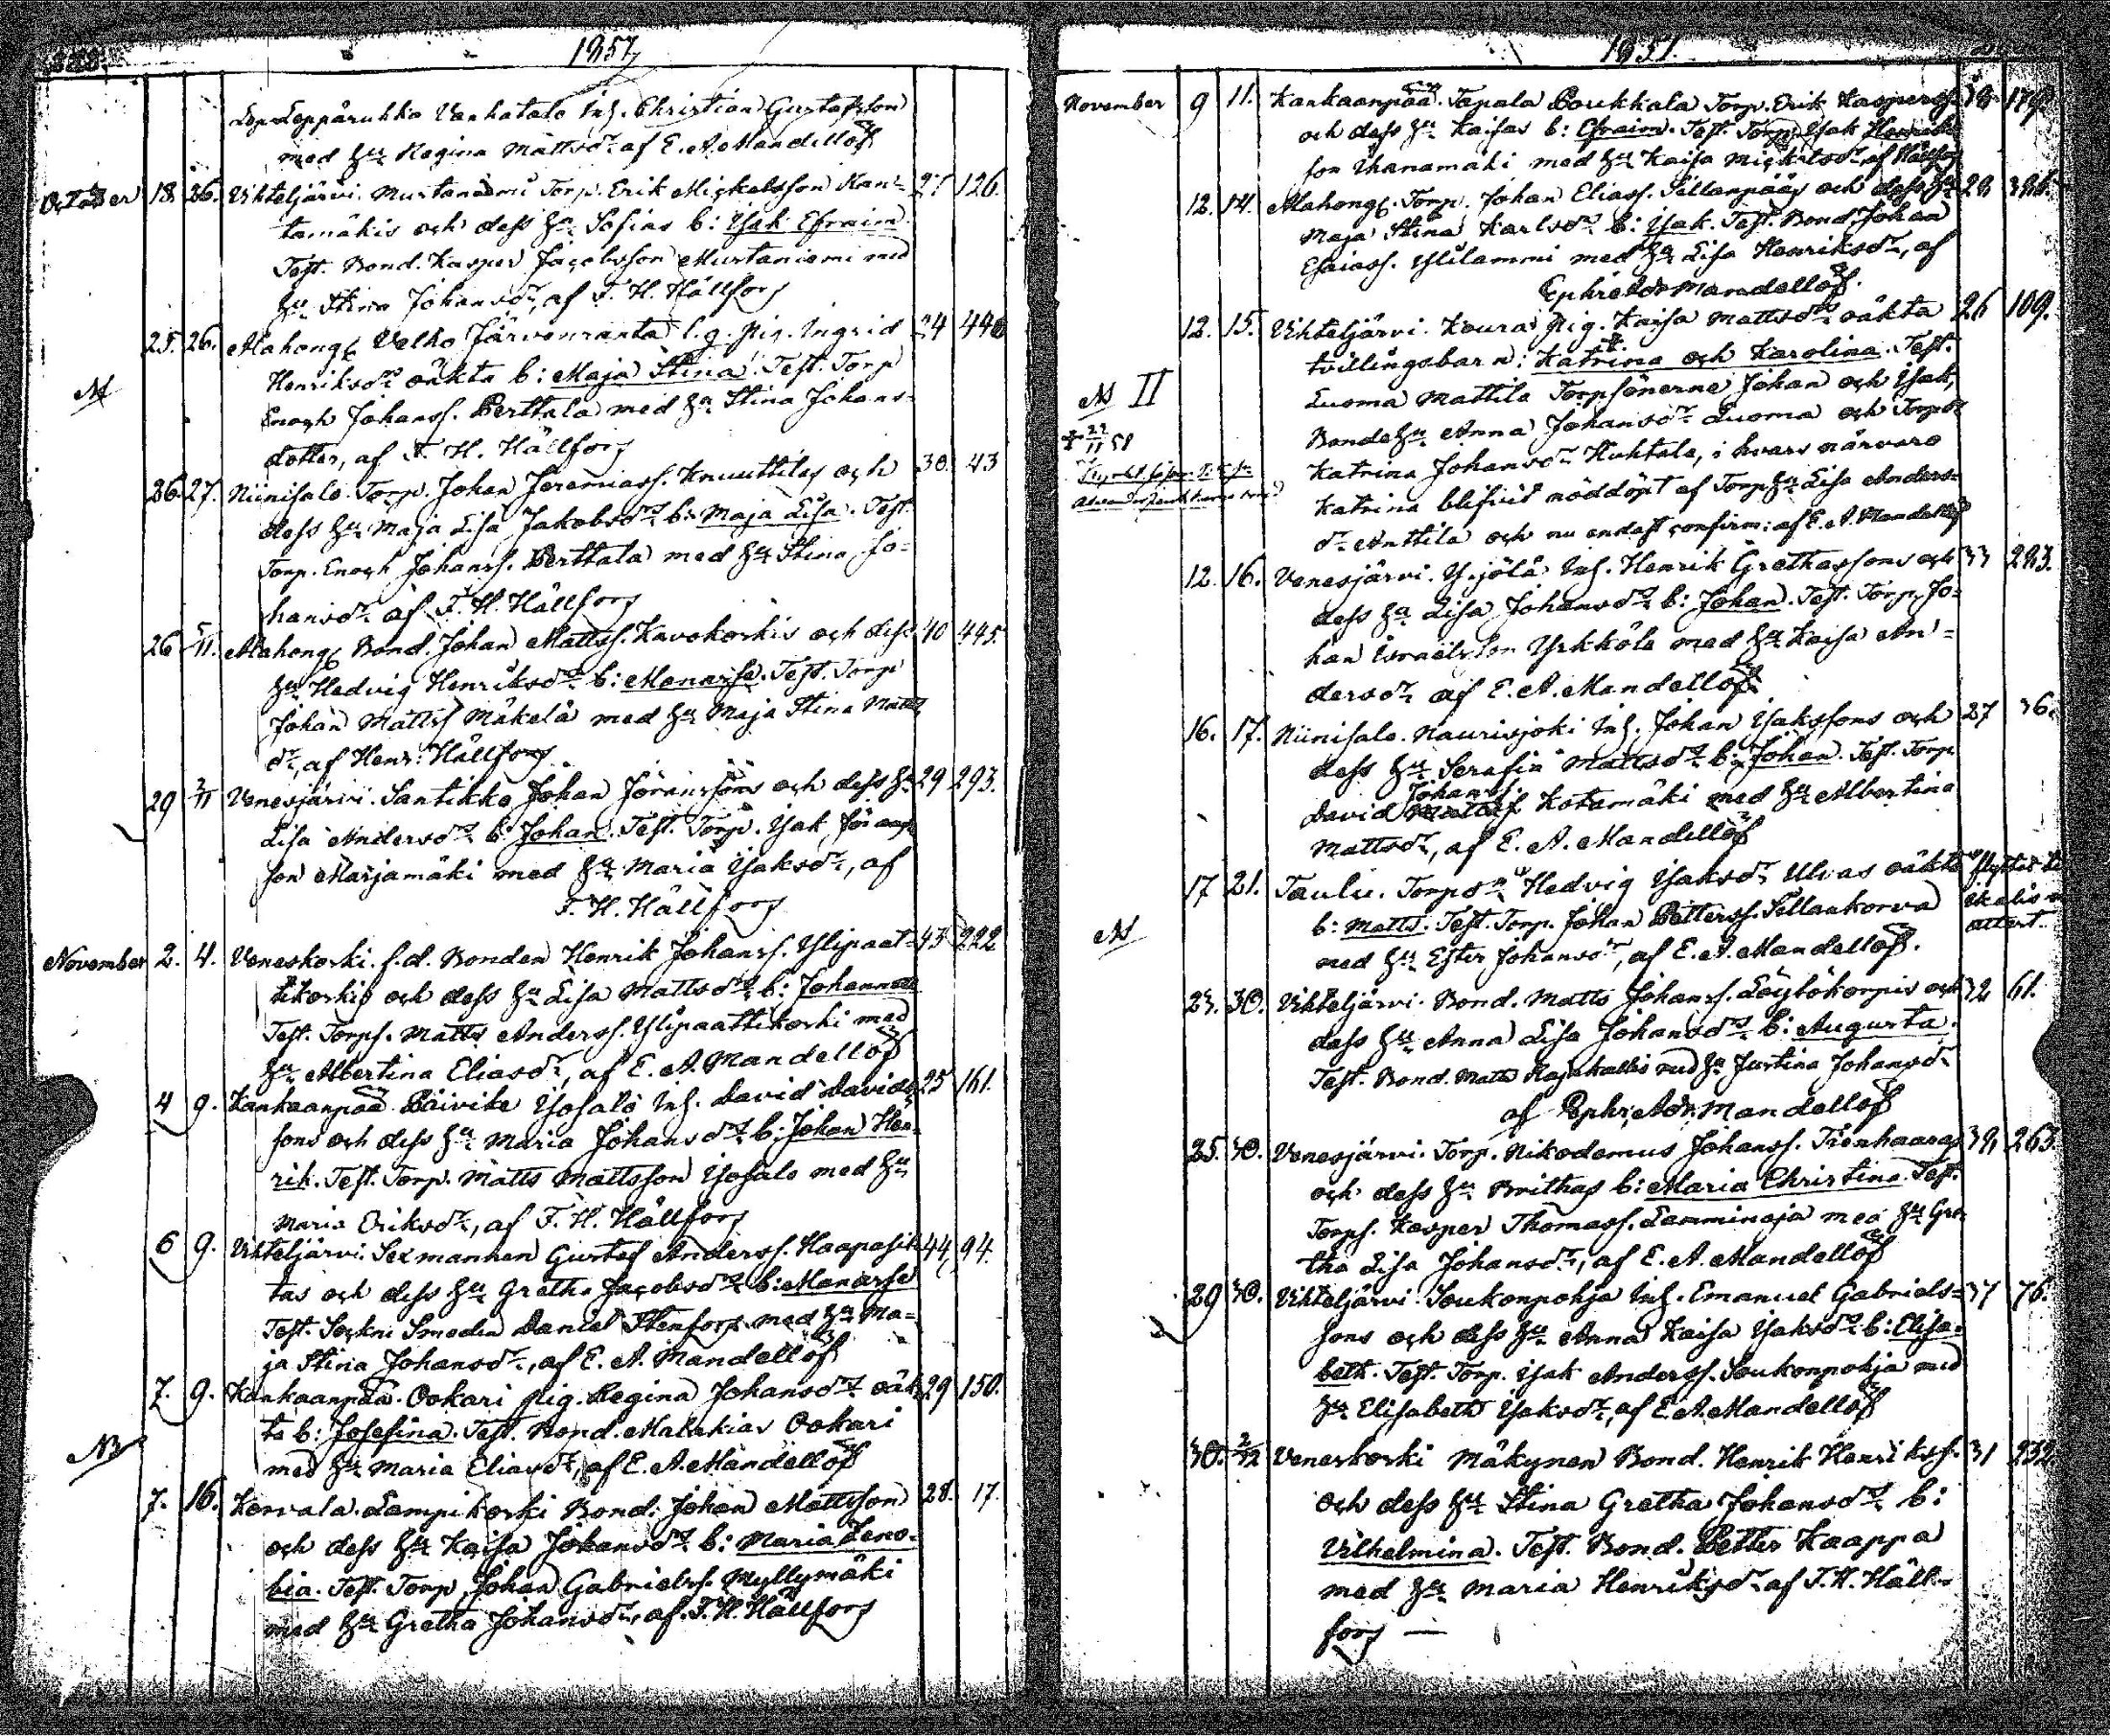 1857
Leppäruhka Vanhatalo Inh. Christian Gustafsson
med Hu Regina Mattsdr af E. A. Mandellöf
October 18. 26. Vihteljärvi. Mustaniemi Torp. Erik Mickelsson Kan= 27 126.
tamäkis och dess Hu Sofias b: Isak Efraim
Test. Bond. Kasper Jacobsson Mustaniemi med
Hu Stina Johansdr, af F. H. Hällfors
25. 26. Alahongs Velho Järvenranta l. g. Pig. Ingrid 24 440
Henriksdrs oäkta b: Maja Stina. Test. Torp
Enoch Johanss. Perttala med Hu Stina Johans=
dotter, af F. H. Hällfors
26. 27. Niinisalo. Torp. Johan Jeremiass. Knuuttilas och 30. 43
dess Hu Maja Lisa Jakobsdrs b: Maja Lisa. Test.
Torp. Enoch Johanss. Perttala med Hu Stina Jo=
hansdr af F. H. Hällfors
26 5/11. Alahongs Bond. Johan Mattss. Kavokorkis och dess 40 445.
Hu Hedvig Henriksdrs b: Manasse. Test. Torp
Johan Mattss Mäkelä med Hu Maja Stina Matts
dr, af Henr: Hällfors
29 2/11 Venesjärvi. Santikko Johan Göranssons och dess Hu 29 293.
Lisa Andersdrs b: Johan. Test. Torp. Isak Göran
son Marjamäki med Hu Maria Isaksdr, af
F. H. Hällfors
November 2. 4. Veneskoski. f. d. Bonden Henrik Johanss. Ylipaat= 43 222
tikoskis och dess Hu Lisa Mattsdrs b: Johannes
Test. Torps. Matts Anderss. Ylipaattikoski med
Hu Albertina Eliasdr, af E. A. Mandellöf
4 9. Kankaanpää. Päivike Isosalo Inh. David Davids= 25 161.
sons och dess Hu Maria Johansdrs b: Johan Hen=
rik. Test. Torp. Matts Mattsson Isosalo med Hu
Maria Eriksdr, af F. H. Hällfors
6 9. Vihteljärvi. Sexmannen Gustaf Anderss. Haapasil= 44, 94.
tas och dess Hu Gretha Jacobsdrs b: Manasse
Test. Sockne Smeden Daniel Stenfors med Hu Ma=
ja Stina Johansdr, af E. A. Mandellöf
7. 9. Kankaanpää. Ookari Pig. Regina Johansdrs oäk 29 150.
ta b: Josefina. Test. Bond. Malakias Ookari
NB med Hu Maria Eliasdr, af E. A. Mandellöf
7. 16. Korvala. Lampikoski Bond. Johan Mattsson 28. 17.
och dess Hu Kaisa Johansdrs b: Maria Zeno=
bia. Test. Torp. Johan Gabrielss. Myllymäki
med Hu Gretha Johansdr, af F. H. Hällfors
1857.
November 9 11. Kankaanpää. Tapala Poukkala Torp. Erik Kasperss. 38 179.
och dess Hu Kaisas b: Efraim. Test. Torp. Isak Henriks
son Uhanamäki med Hu Kaisa Mickelsdr, af Hällfors
12. 14. Alahongs. Torp. Johan Eliass. Sillanpääs och dess Hu 28
Maja Stina Karlsdrs b: Isak. Test. Bond. Johan
Esaiass. Ylilammi med Hu Lisa Henriksdr, af
Ephr. Adr. Mandellöf.
12. 15. Vihteljärvi. Koura Pig. Kaisa Mattsdrs oäkta 26 109.
tvillingsbarn: Katrina och Karolina. Test.
II Luoma Mattila Torpsönerne Johan och Isak,
Bonde Hu Anna Johansdr Luoma och Torpdr
Katrina Johansdr Huhtala, i hvars närvaro
Katrina blifvit nöddöpt af Torp Hu Lisa Anders=
dr Anttila och nu endast confirm: af E. A. Mandellöf
12. 16. Venesjärvi. Yrjölä Inh. Henrik Grethassons och 33 283.
dess Hu Lisa Johansdrs b: Johan. Test. Torp. Jo=
han Israelsson Yrkkölä med Hu Kaisa An=
dersdr af E. A. Mandellöf.
16. 17. Niinisalo. Naurisjoki Inh. Johan Isakssons och 27 36.
dess Hu Serafia Mattsdrs b: Johan. Test. Torp.
David Johanss. Kotamäki med Hu Albertina
Mattsdr, af E. A. Mandellöf
17 21. Taulu. Torpdrs Hedvig Isaksdrs Ulvas oäkta
b: Matts. Test. Torp. Johan Petterss. Sillankorva
med Hu Ester Johansdr, af E. A. Mandellöf.
23. 30. Vihteljärvi. Bond. Matts Johanss. Löytökorpis och 32 61.
dess Hu Anna Lisa Johansdrs b: Augusta.
Test. Bond. Matts Rajakallio med Hu Justina Johansdr
af Ephr. Adr. Mandellöf
25. 30. Venesjärvi. Torp. Nikodemus Johanss. Tienhaaras 38 263
och dess Hu Brithas b: Maria Christina. Test.
Torps. Kasper Thomass. Lamminoja med Hu Gre=
tha Lisa Johansdr, af E. A. Mandellöf
29 30. Vihteljärvi. Soukonpohja Inh. Emanuel Gabriels= 37 76.
sons och dess Hu Anna Kaisa Isaksdrs b: Elisa=
beth. Test. Torp. Isak Anderss. Soukonpohja med
Hu Elisabeth Isaksdr, af E. A. Mandellöf
30. 2/12 Veneskoski Mäkynen Bond. Henrik Henrikss. 31 232.
och dess Hu Stina Gretha Johansdrs b:
Vilhelmina. Test. Bond. Petter Kaappa
med Hu Maria Henriksdr af F. H. Häll=
fors —